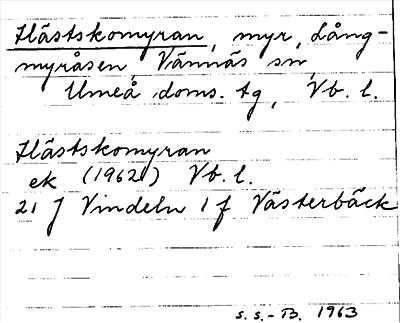 Hästskomyran, myr, Lång-
myråsen, Vännäs sn,
Umeå doms. tg, Vb. l.
Hästskomyran
ek (1962) Vb. l.
21 J Vindeln 1 f Västerbäck
S. S. - B. 1963